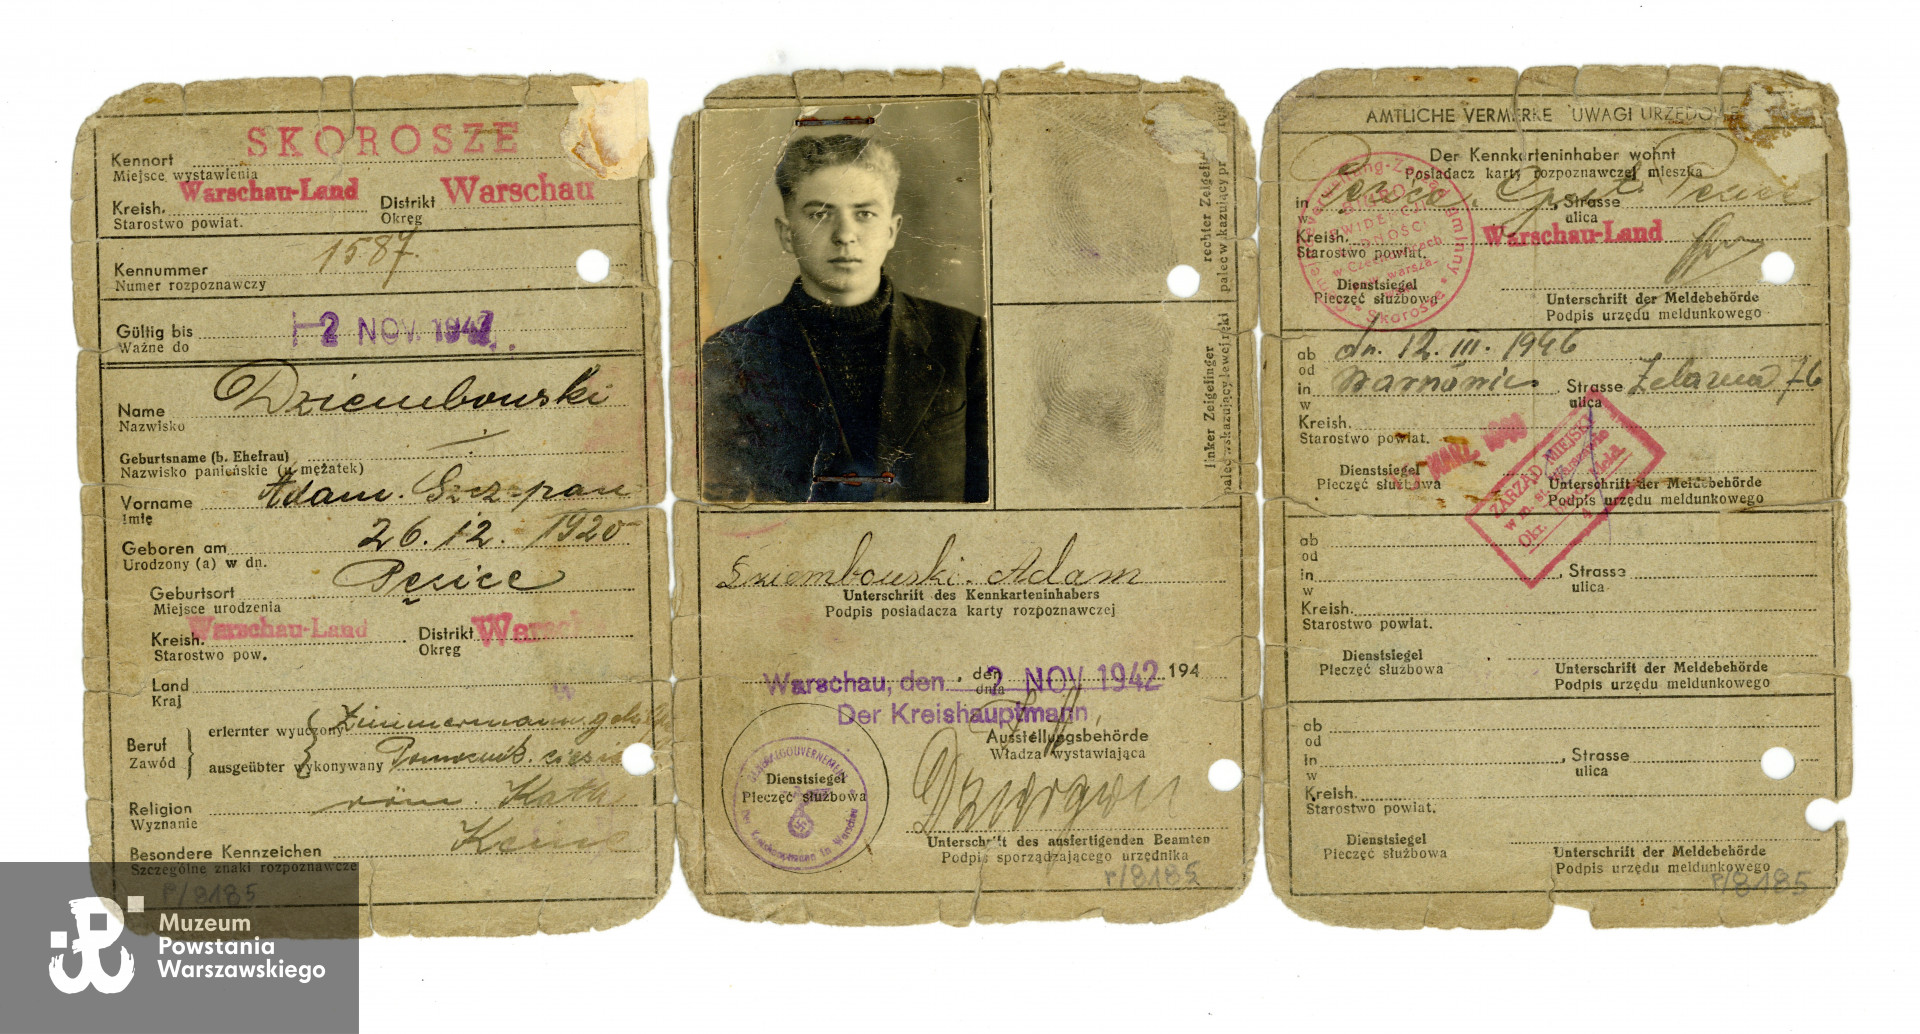 SKOROSZE
Kennort
Miejsce wystawienia
Warschau-Land
Kreish.
Starostwo powiat.
Distrikt Warschau
Okręg
Kennummer 1587.
Numer rozpoznawczy
Gültig bis 2 NOV 1947
Ważne do
Name Dziembowski
Nazwisko
Geburtsname (b. Ehefrau)
Nazwisko panieńskie (u mężatek)
Vorname Adam. Szczepan
Imię
Geboren am 26. 12. 1920
Urodzony (a) w dn.
Geburtsort Pęcice
Miejsce urodzenia
Kreish. Warschau-Land
Starostwo pow.
Distrikt
Okręg
Land
Kraj
Beruf
Zawód
erlernter wyuczony Zimmermann
ausgeübter wykonywany Pomocnik
Religion röm Kath
Wyznanie
Besondere Kennzeichen Keine
Szczególne znaki rozpoznawcze
P/8185
rechter Zeigefinger
linker Zeigefinger
palec wskazujący lewej ręki
Dziembowski. Adam
Unterschrift des Kennkarteninhabers
Podpis posiadacza karty rozpoznawczej
Warschau, den 2 NOV 1942 194
den
dnia
Der Kreishauptmann
Ausstellungsbehörde
Władza wystawiająca
Dienstsiegel
Pieczęć służbowa
Unterschrift des ausfertigenden Beamten
Podpis sporządzającego urzędnika
P/8185
AMTLICHE VERMERKE UWAGI URZĘDOWE
Der Kennkarteninhaber wohnt
Posiadacz karty rozpoznawczej mieszka
in Pęcice, Strasse
w ulica
Kreish. Warschau-Land
Starostwo powiat.
Dienstsiegel
Pieczęć służbowa
Unterschrift der Meldebehörde
Podpis urzędu meldunkowego
ab dn. 12. III. 1946
od
in Strasse Żelazna 76
w ulica
Kreish.
Starostwo powiat.
Dienstsiegel
Pieczęć służbowa
ZARZĄD MIEJSKI
w m. st. Warszawie
Unterschrift der Meldebehörde
Podpis urzędu meldunkowego
ab
od
in Strasse
w ulica
Kreish.
Starostwo powiat.
Dienstsiegel
Pieczęć służbowa
Unterschrift der Meldebehörde
Podpis urzędu meldunkowego
ab
od
in Strasse
w ulica
Kreish.
Starostwo powiat.
Dienstsiegel
Pieczęć służbowa
Unterschrift der Meldebehörde
Podpis urzędu meldunkowego
P/8185
Muzeum
Powstania
Warszawskiego